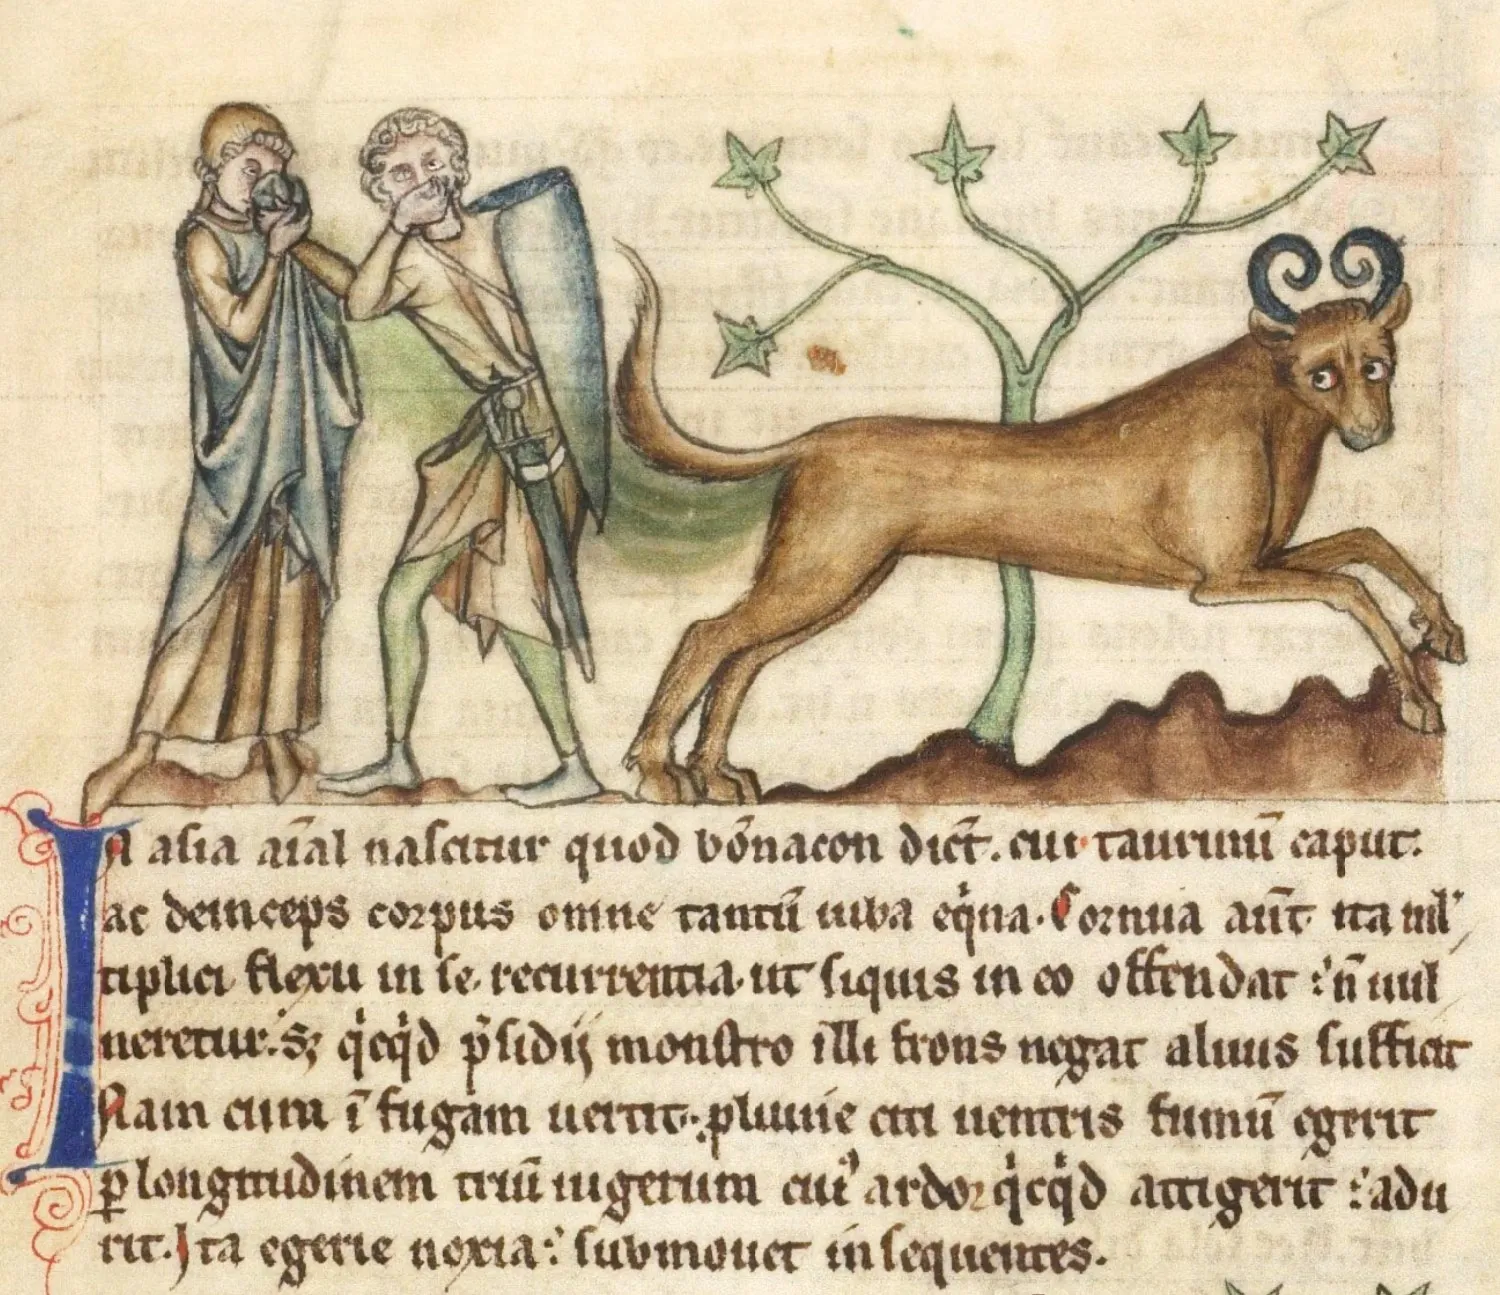 In asia aīal nascitur quod bōnacon dicť. cui taurinū caput.
ac deinceps corpus omne tantū iuba eq̇na. Cornua aūt ita ml'
tiplici flexu in se recurrentia. ut siquis in eo offendat : ñ uul
neretur. Sꝫ q̇cq̇d p̄sidij monstro illi frons negat aluus sufficit
Nam cum ī fugam uertit. citi uentris fumū egerit
ꝑ longitudinem triū iugerum cui᾿ ardor q̇cq̇d attigerit : adu
rit. Ita egerie noxia : submouet insequentes.